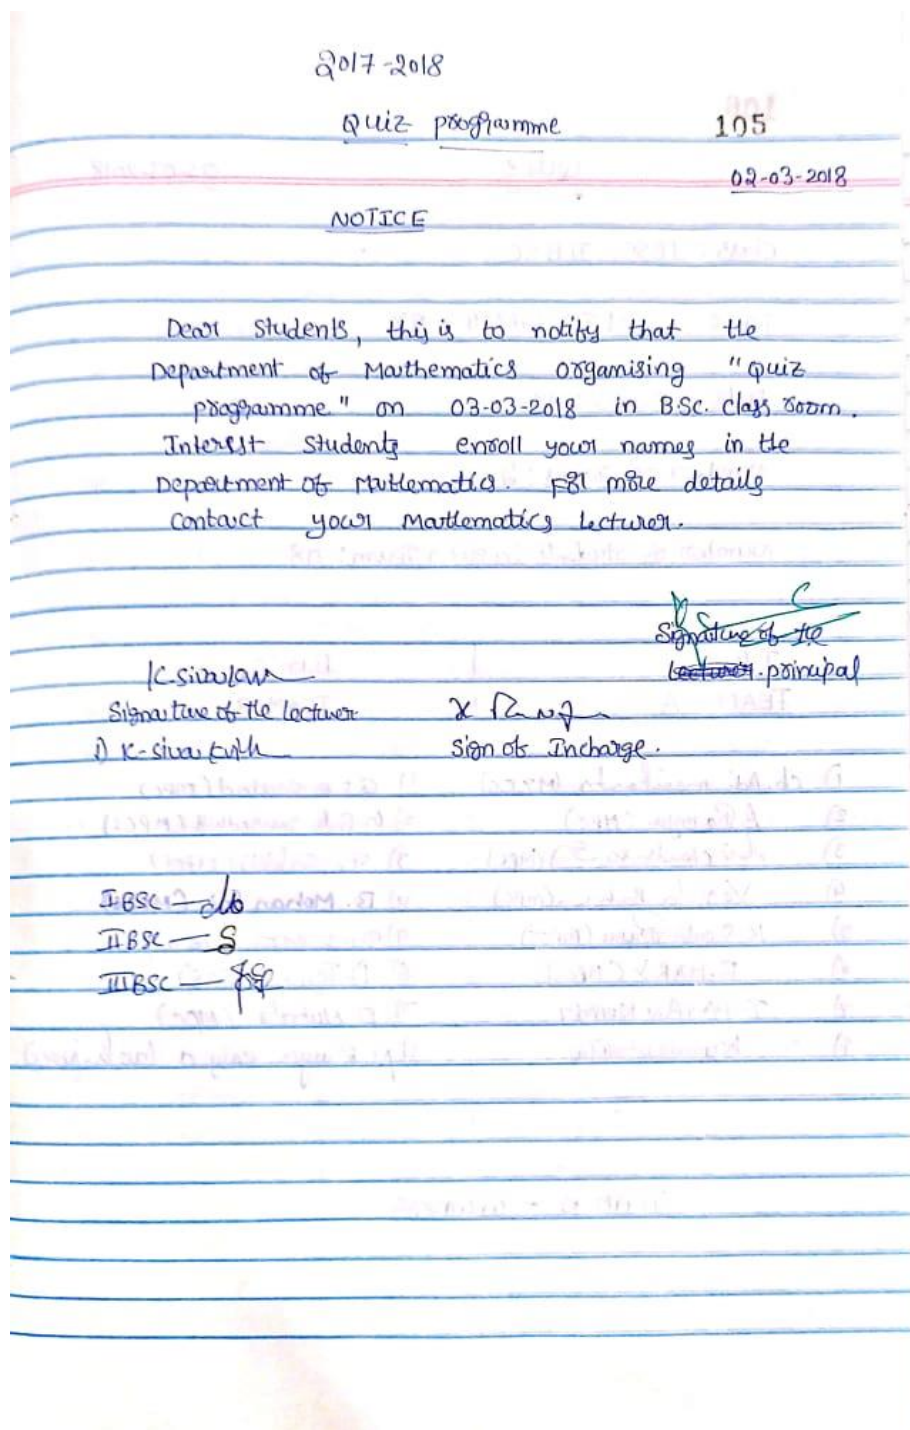 2017-2018
Quiz programme 105
02-03-2018
NOTICE
Dear Students, this is to notify that the
Department of Mathematics organising "Quiz
programme" on 03-03-2018 in B.Sc. class room.
Interest Students enroll your names in the
Department of Mathematics. For more details
contact your Mathematics lecturer.
Signature of the
lecturer. principal
Signature of the lecturer
1) K-siva
Sign of Incharge.
I BSC —
II BSC — S
III BSC —